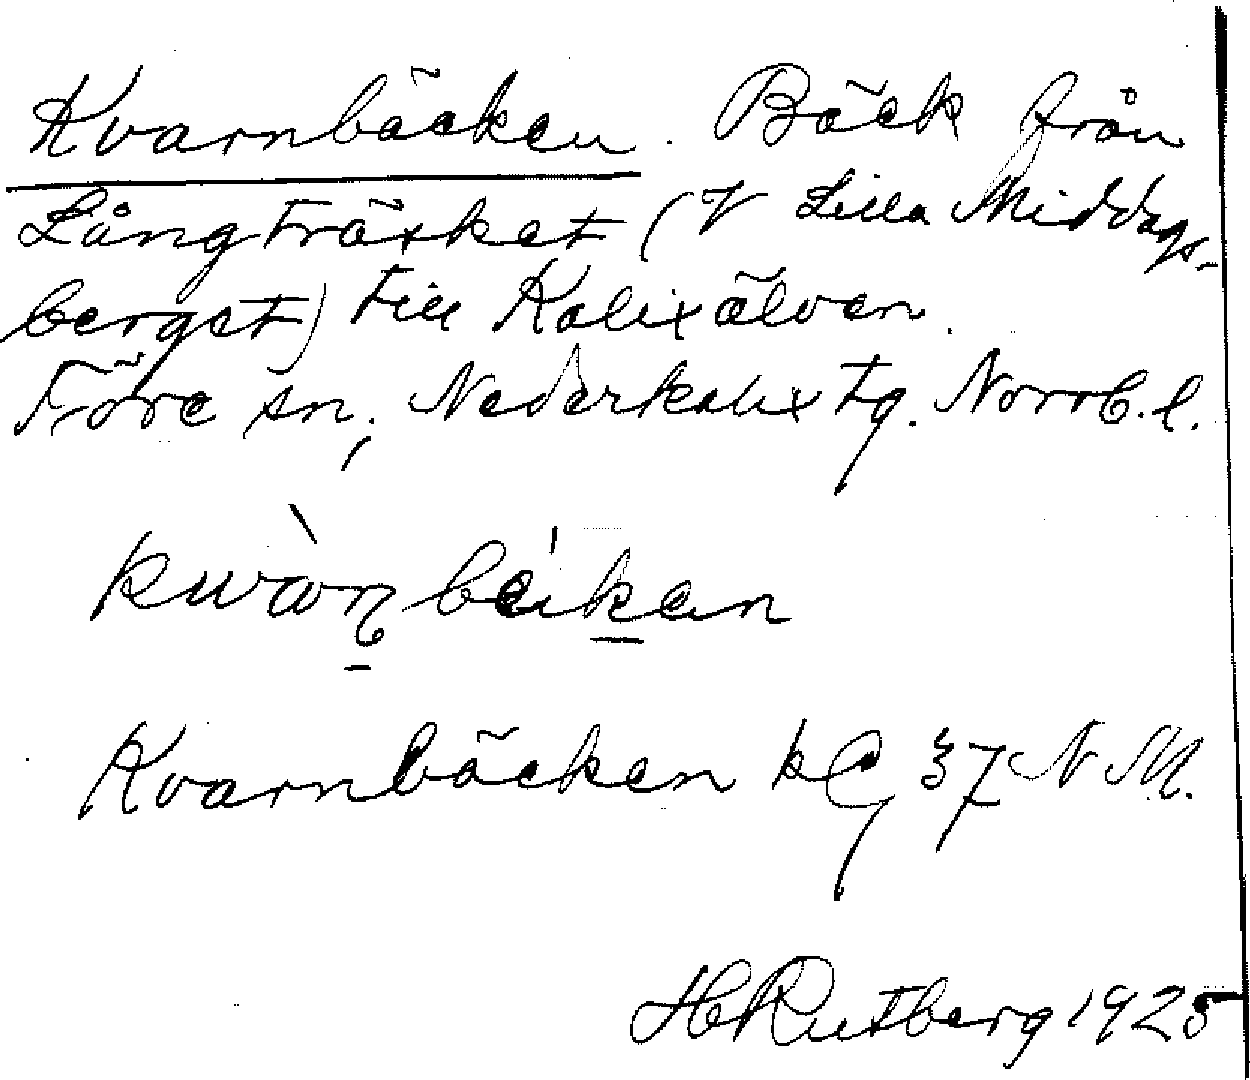 Kvarnbäcken. Bäck från
Långträsket (V Lilla Middags-
berget) till Kalixälven.
Töre sn, Nederkalix tg. Norrb. l.
Kvarnbäcken kg 37 N M.
H Rutberg 1925